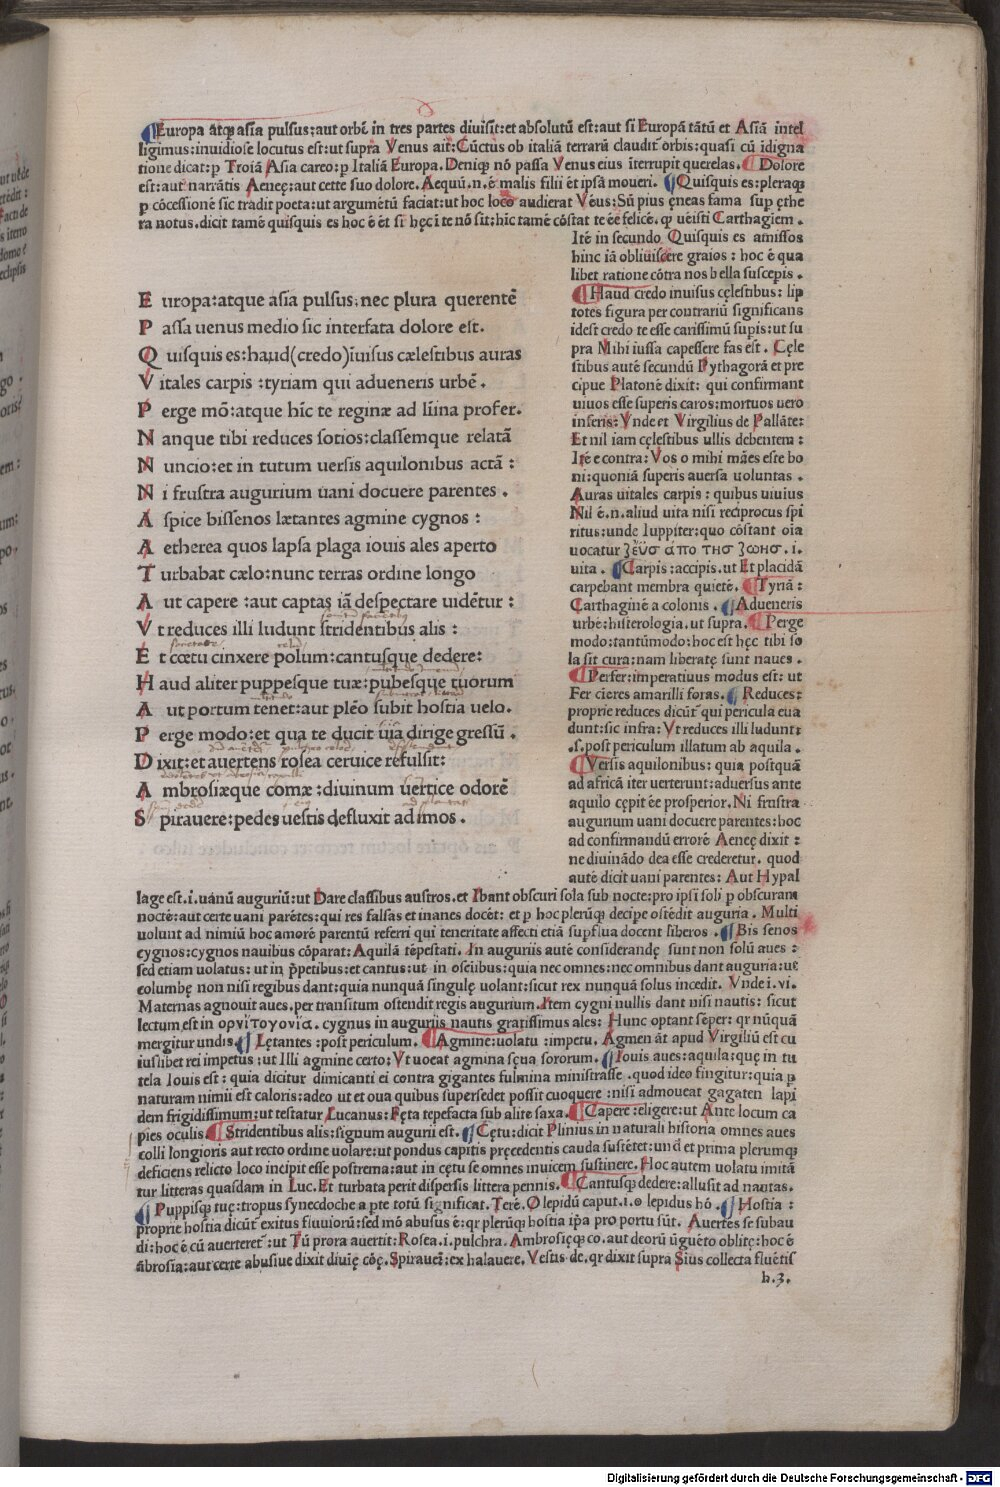 Europa atq; asia pulsus:aut orbē in tres partes diuisit:et absolutū est:aut si Europā tātū et Asiā intel
ligimus:inuidiose locutus est:ut supra Venus ait:Cūctus ob italiā terrarū claudit orbis:quasi cū idigna
tione dicat:p Troiā Asia careo:p Italiā Europa.Deniq; nō passa Venus eius iterrupit querelas. Dolore
est:aut narrātis Aeneę:aut certe suo dolore.Aequū.n.ē malis filii ēt ipsā moueri. Quisquis es:pleraq;
p cōcessionē sic tradit poeta:ut argumētū faciat:ut hoc loco audierat Veus:Sū pius ęneas fama sup ęthe
ra notus.dicit tamē quisquis es hoc ē ēt si hęc i te nō sit:hīc tamē cōstat te eē felicē, q; ueisti Carthagiem.
Itē in secundo Quisquis es amissos
hinc iā obliuiscere graios : hoc ē qua
libet ratione cōtra nos bella suscepis.
Haud credo inuisus cęlestibus: lip
totes figura per contrariū significans
idest credo te esse carissimū supis:ut su
pra Mihi iussa capessere fas est. Cęle
stibus autē secundū Pythagorā et pre
cipue Platonē dixit: qui confirmant
uiuos esse superis caros:mortuos uero
inferis:Vnde et Virgilius de Pallāte:
Et nil iam cęlestibus ullis debentem :
Itē e contra: Vos o mihi māes este bo
ni:quoniā superis auersa uoluntas.
Auras uitales carpis: quibus uiuius
Nil ē.n.aliud uita nisi reciprocus spi
ritus:unde Iuppiter:quo cōstant oīa
uocatur ζεὺσ ἀπο τησ ζωησ.i.
uita. Carpis:accipis.ut Et placidā
carpebant membra quietē. Tyriā:
Carthaginē a colonis. Adueneris
urbē:histerologia.ut supra. Perge
modo:tantūmodo:hoc est hęc tibi so
la sit cura:nam liberatę sunt naues.
Perfer:imperatiuus modus est: ut
Fer cieres amarilli foras. Reduces:
proprie reduces dicūt qui pericula eua
dunt:sic infra: Vt reduces illi ludunt:
.s.post periculum illatum ab aquila.
Versis aquilonibus: quia postquā
ad africā iter uerterunt:aduersus ante
aquilo cępit eē prosperior.Ni frustra
augurium uani docuere parentes:hoc
ad confirmandū errorē Aeneę dixit :
ne diuināado dea esse crederetur. quod
autē dicit uani parentes: Aut Hypal
E uropa:atque asia pulsus:nec plura querentē
P assa uenus medio sic interfata dolore est.
Q uisquis es:haud(credo)īuisus cælestibus auras
V itales carpis :tyriam qui adueneris urbē.
P erge mō:atque hīc te reginæ ad līina profer.
N anque tibi reduces sotios:classemque relatā
N uncio:et in tutum uersis aquilonibus actā :
N i frustra augurium uani docuere parentes.
A spice bissenos lætantes agmine cygnos :
A etherea quos lapsa plaga iouis ales aperto
T urbabat cælo:nunc terras ordine longo
A ut capere :aut captas iā despectare uidētur :
V t reduces illi ludunt stridentibus alis :
E t cœtu cinxere polum:cantusque dedere:
H aud aliter puppesque tuæ:pubesque tuorum
A ut portum tenet:aut plēo subit hostia uelo.
P erge modo:et qua te ducit uia dirige gressū.
D ixit:et auertens rosea ceruice refulsit:
A mbrosiæque comæ :diuinum uertice odorē
S pirauere:pedes uestis defluxit ad imos.
lage est.i.uanū auguriū:ut Dare classibus austros.et Ibant obscuri sola sub nocte:pro ipsi soli p obscuram
noctē:aut certe uani parētes:qui res falsas et inanes docēt: et p hoc plerūq; decipe ostēdit auguria. Multi
uolunt ad nimiū hoc amorē parentū referri qui teneritate affecti etiā supflua docent liberos. Bis senos
cygnos:cygnos nauibus cōparat:Aquilā tēpestati. In auguriis autē considerandę sunt non solū aues :
sed etiam uolatus: ut in p̄petibus:et cantus:ut in oscibus:quia nec omnes:nec omnibus dant auguria:ut
columbę non nisi regibus dant:quia nunquā singulę uolant:sicut rex nunquā solus incedit. Vnde i.vi.
Maternas agnouit aues.per transitum ostendit regis augurium.Item cygni nullis dant nisi nautis: sicut
lectum est in ορνιτογονία.cygnus in auguriis nautis gratissimus ales: Hunc optant sēper: qr nūquā
mergitur undis. Lętantes :post periculum. Agmine:uolatu :impetu. Agmen āt apud Virgiliū est cu
iuslibet rei impetus :ut Illi agmine certo: Vt uocat agmina sęua sororum. Iouis aues:aquila:quę in tu
tela Iouis est: quia dicitur dimicanti ei contra gigantes fulmina ministrasse .quod ideo fingitur:quia p
naturam nimii est caloris:adeo ut et oua quibus supersedet possit cuoquere :nisi admoueat gagaten lapi
dem frigidissimum:ut testatur Lucanus: Fęta tepefacta sub alite saxa. Capere:eligere:ut Ante locum ca
pies oculis. Stridentibus alis:signum augurii est. Cętu:dicit Plinius in naturali historia omnes aues
colli longioris aut recto ordine uolare:ut pondus capitis pręcedentis cauda sustētet:unđ et prima plerumq;
deficiens relicto loco incipit esse postrema:aut in cętu se omnes inuicem sustinere. Hoc autem uolatu imitā
tur litteras quasdam in Luc.Et turbata perit dispersis littera pennis. Cantusq; dedere:allusit ad nautas.
Puppisq; tuę:tropus synecdoche a pte totū significat. Terē.O lepidū caput.i.o lepidus hō. Hostia :
proprie hostia dicūt exitus fluuiorū:sed mō abusus ē:qr plerūq; hostia ipa pro portu sūt. Auertēs se subau
di:hoc ē cū auerteret :ut Tū prora auertit: Rosea.i.pulchra. Ambrosięq; co.aut deorū ūguēto oblitę:hoc ē
ābrosia:aut certe abusiue dixit diuię cōę.Spirauer̄:ex halauere. Vestis de.qr dixit supra Sius collecta fluētis
h.3.
Digitalisierung gefördert durch die Deutsche Forschungsgemeinschaft - DFG